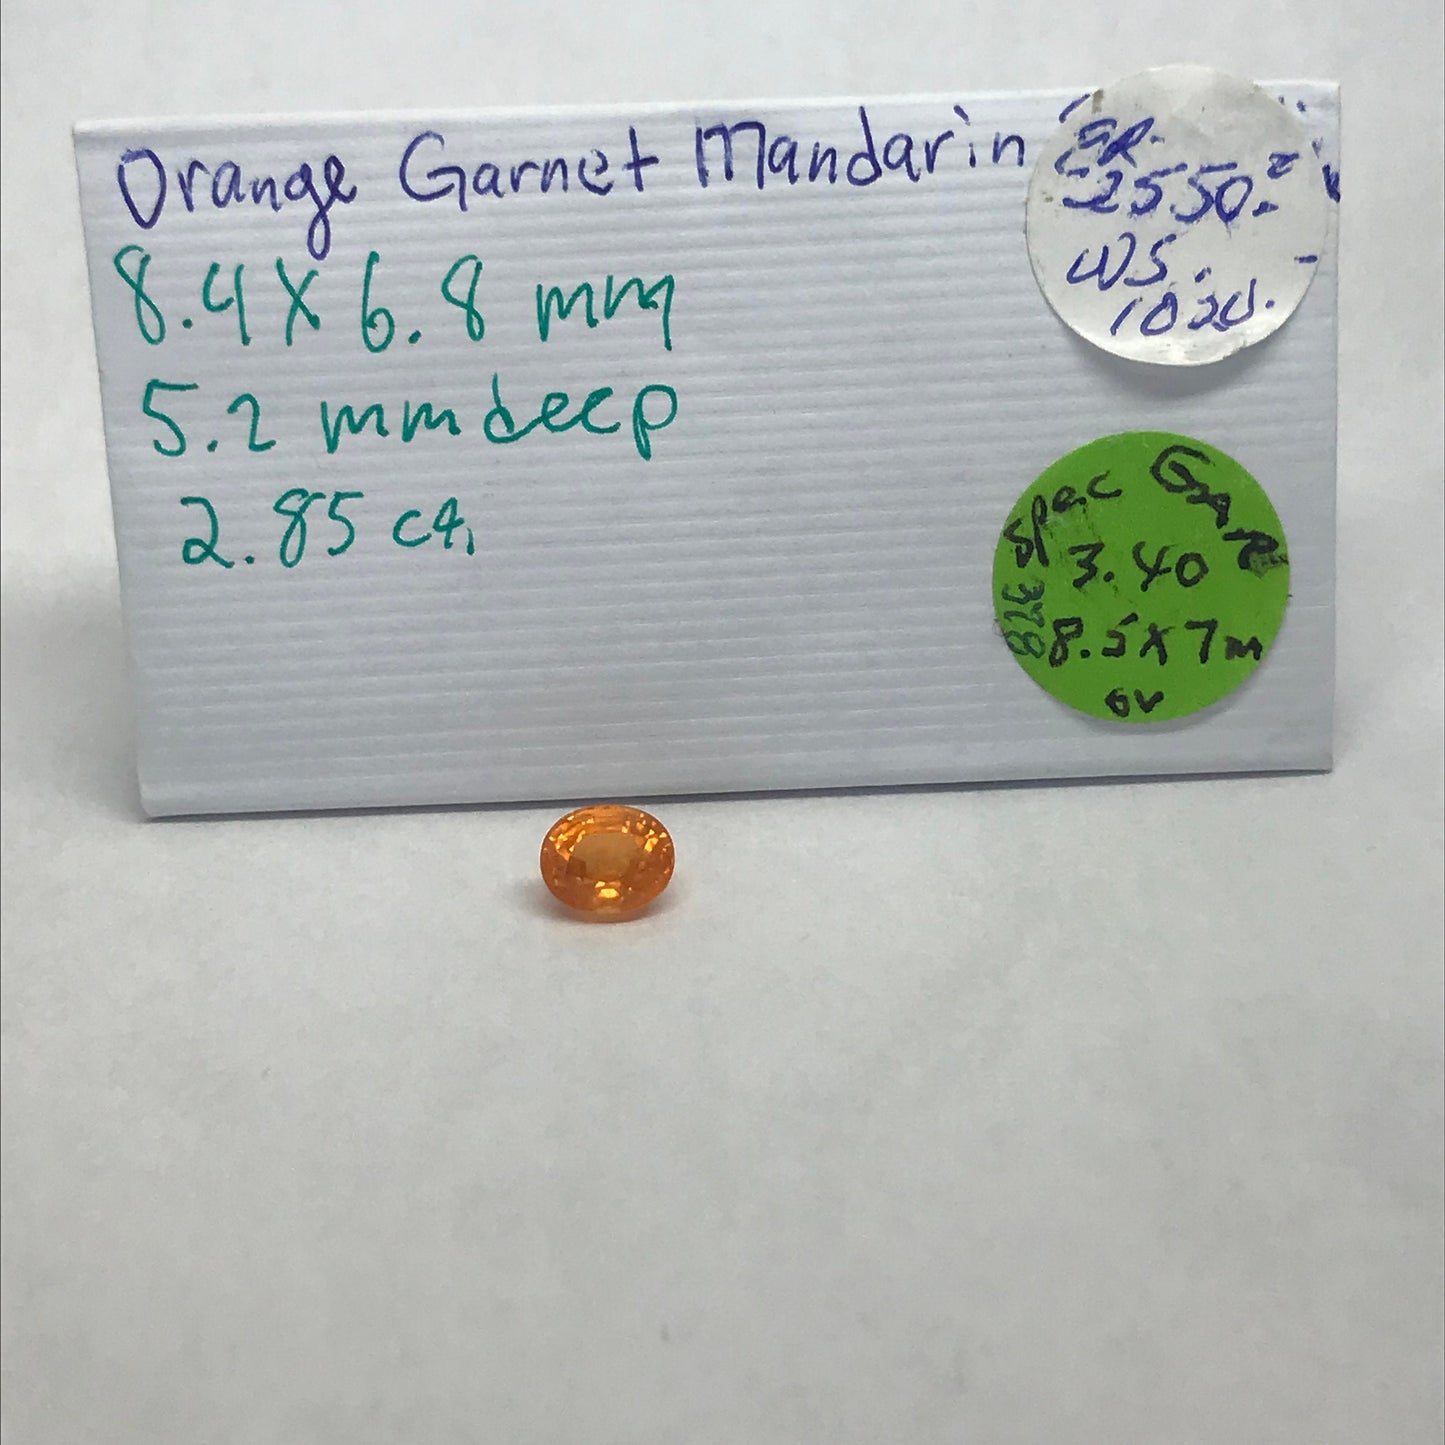 Orange Garnet Mandarin
8.4 X 6.8 mm
5.2 mm deep
2.85 ct.
2550.
WS.
Spec Gar
3.40
8.5 X 7 m
ov